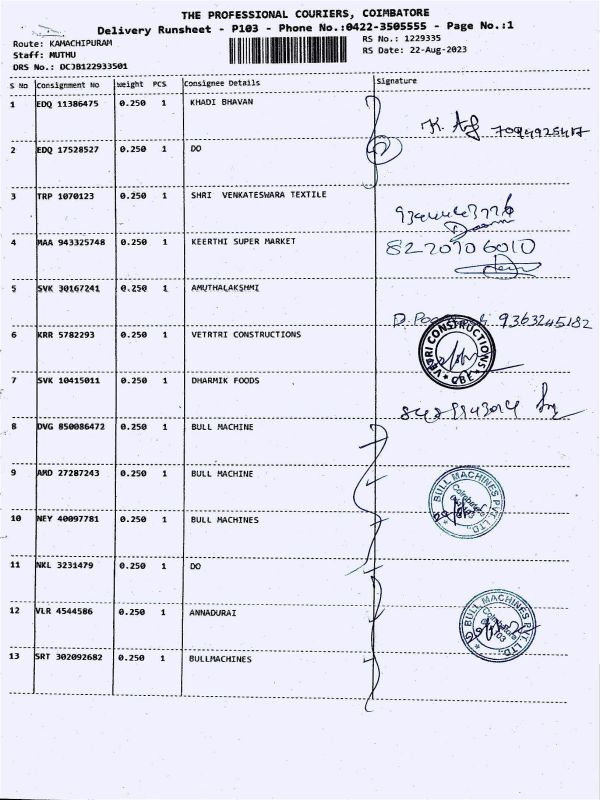 THE PROFESSIONAL COURIERS, COIMBATORE
Delivery Runsheet - P103 - Phone No.:0422-3505555 - Page No.:1
Route: KAMACHIPURAM
RS No.: 1229335
Staff: MUTHU
RS Date: 22-Aug-2023
DRS No.: DCJB122933501
S No Consignment No Weight PCS Consignee Details Signature
1 EDQ 11386475 0.250 1 KHADI BHAVAN
2 EDQ 17528527 0.250 1 DO
3 TRP 1070123 0.250 1 SHRI VENKATESWARA TEXTILE
4 MAA 943325748 0.250 1 KEERTHI SUPER MARKET 8220706010
5 SVK 30167241 0.250 1 AMUTHALAKSHMI
9363245182
6 KRR 5782293 0.250 1 VETRTRI CONSTRUCTIONS
VETRI CONSTRUCTIONS
CBE
7 SVK 10415011 0.250 1 DHARMIK FOODS
8 DVG 850086472 0.250 1 BULL MACHINE
9 AMD 27287243 0.250 1 BULL MACHINE
BULL MACHINES PVT. LTD.
Coimbatore
10 NEY 40097781 0.250 1 BULL MACHINES
11 NKL 3231479 0.250 1 DO
12 VLR 4544586 0.250 1 ANNADURAI
BULL MACHINES PVT. LTD.
Coimbatore
13 SRT 302092682 0.250 1 BULLMACHINES